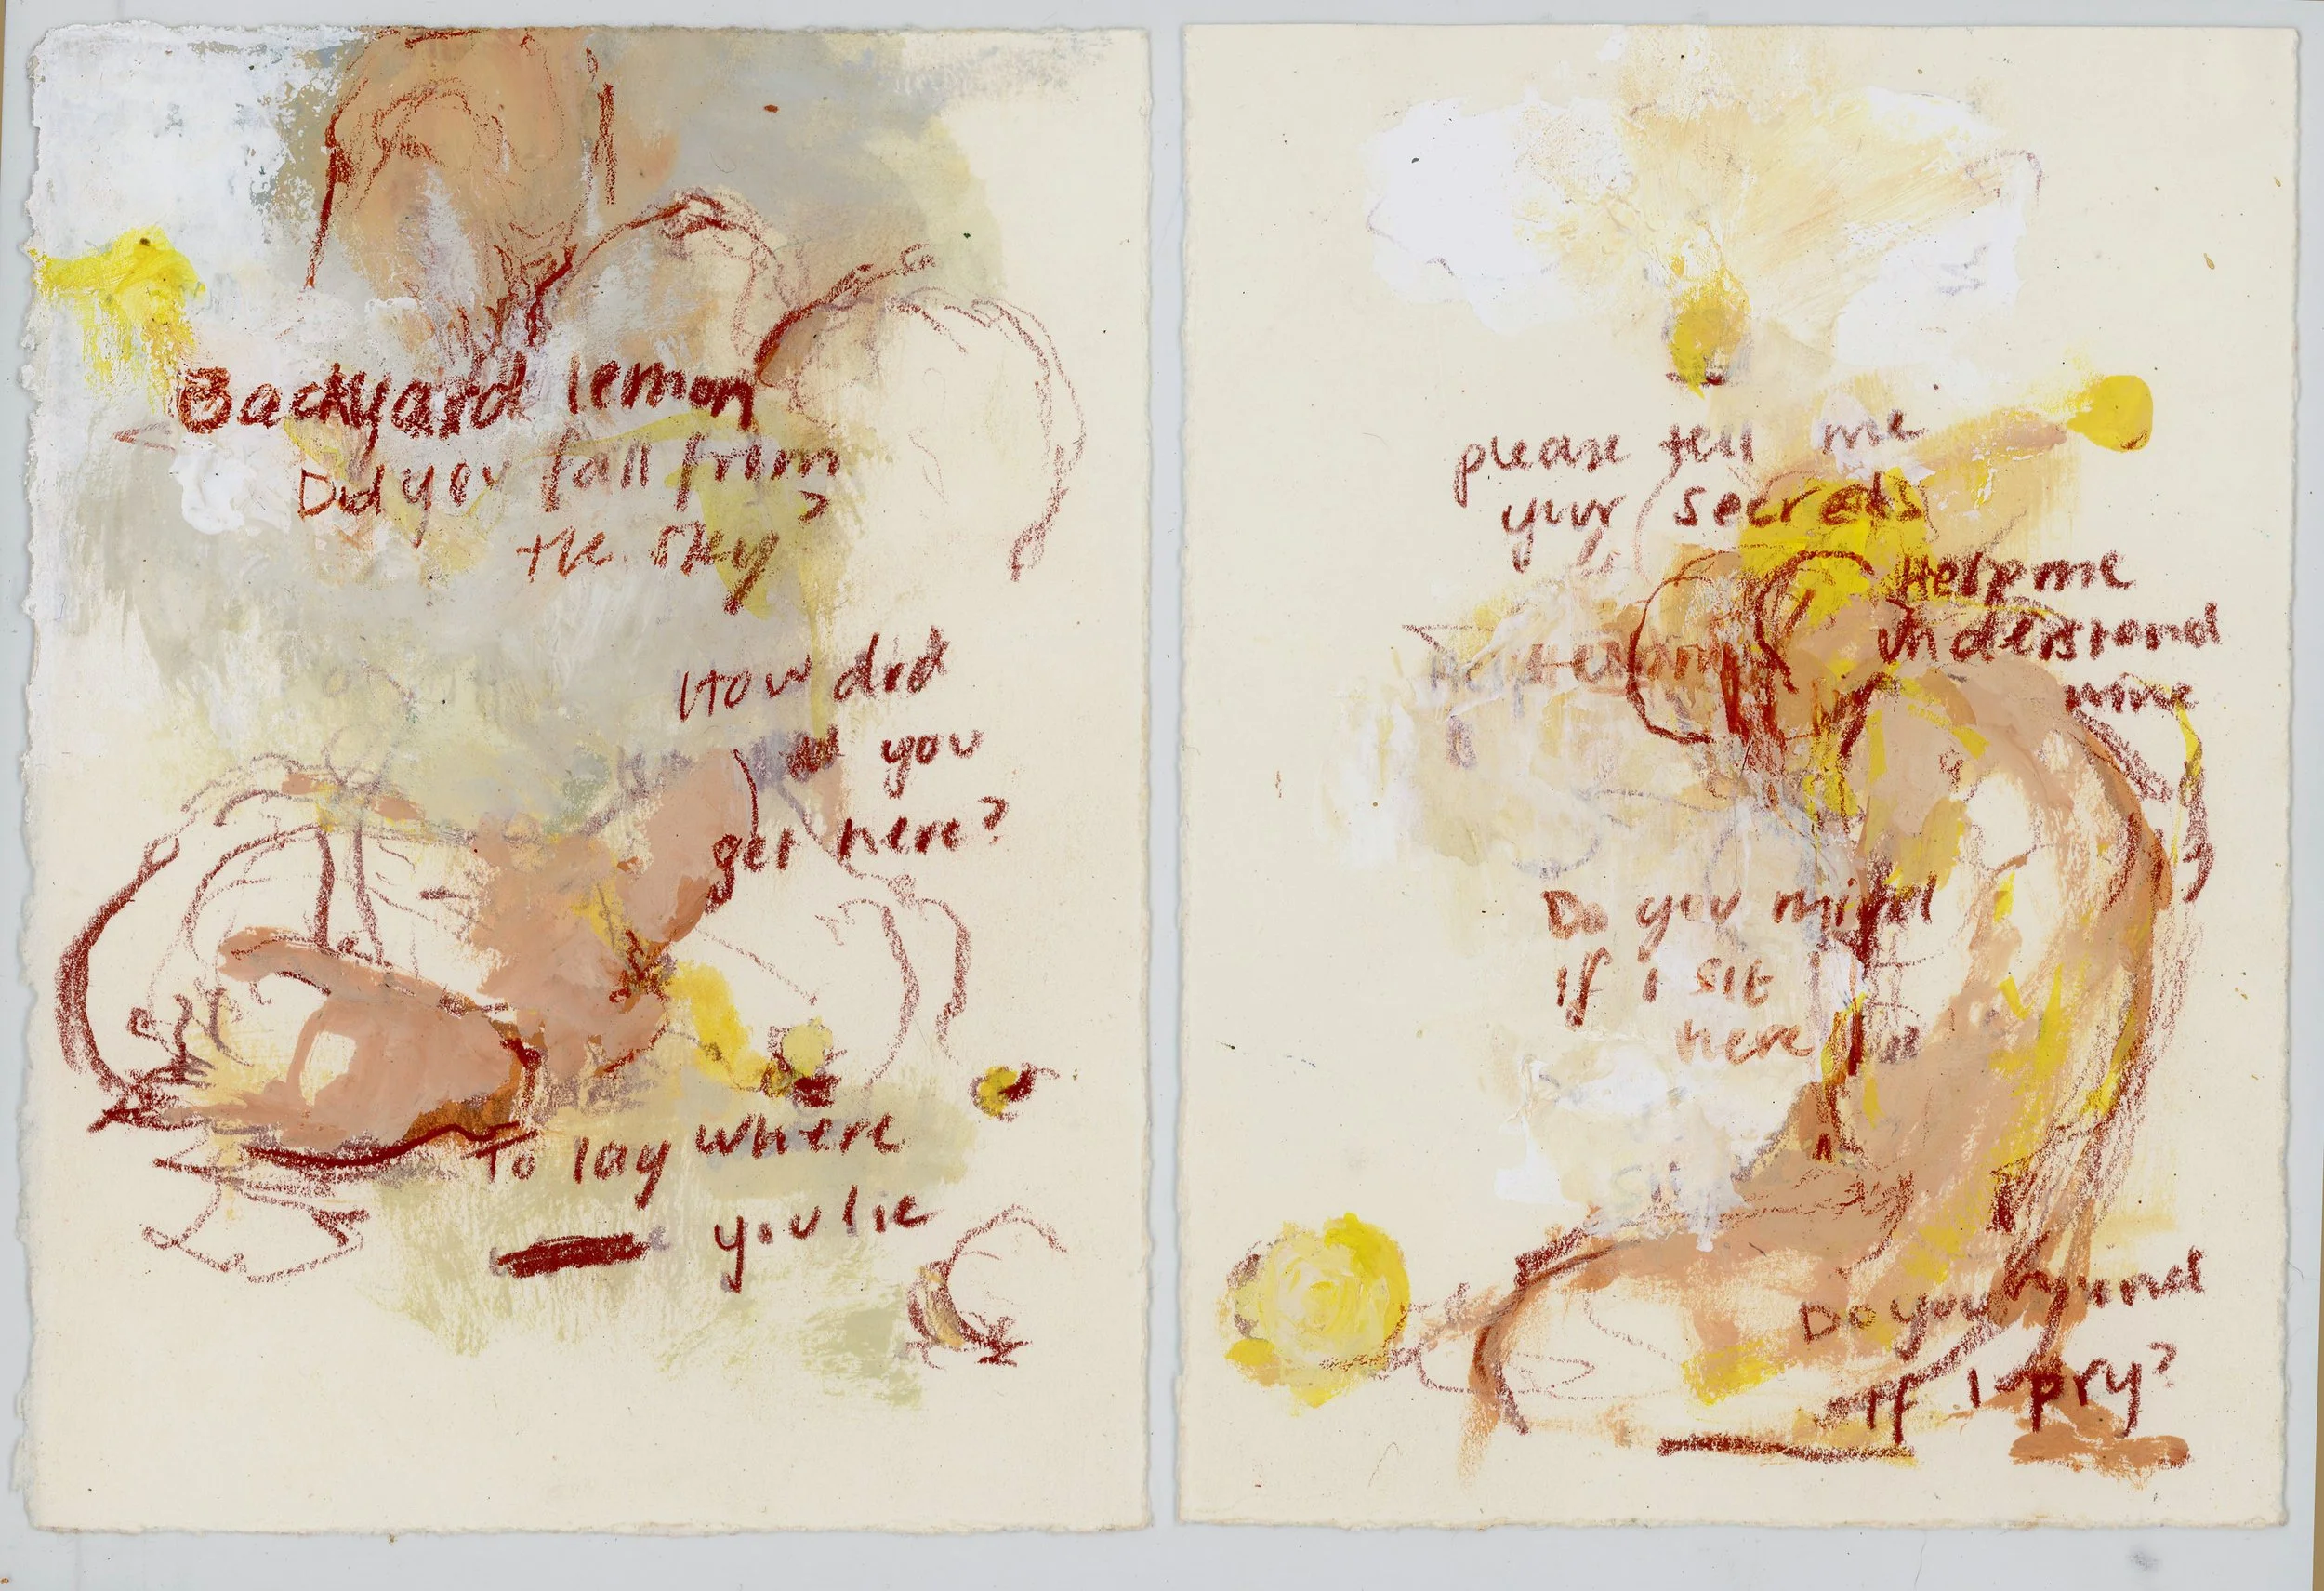 Backyard lemon
Did you fall from
the sky?
How did
you
get here?
To lay where
you lie
please tell me
your secrets
Help me
understand
mine
Do you mind
if I sit
here
Do you mind
If I pry?